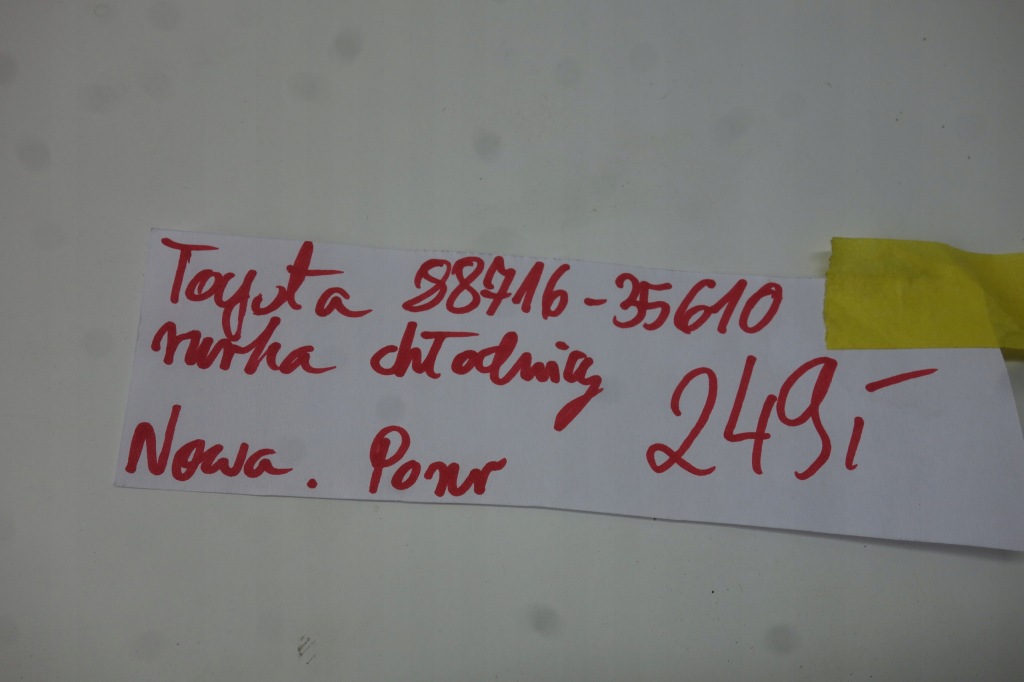 Toyota 88716-35610
rurka chłodnicy
249,-
Nowa.